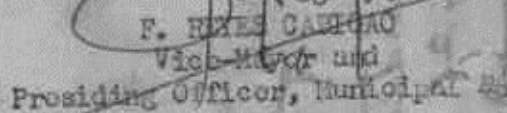 F. REYES CABIGAO
Vice-Mayor and
Presiding Officer, Municipal